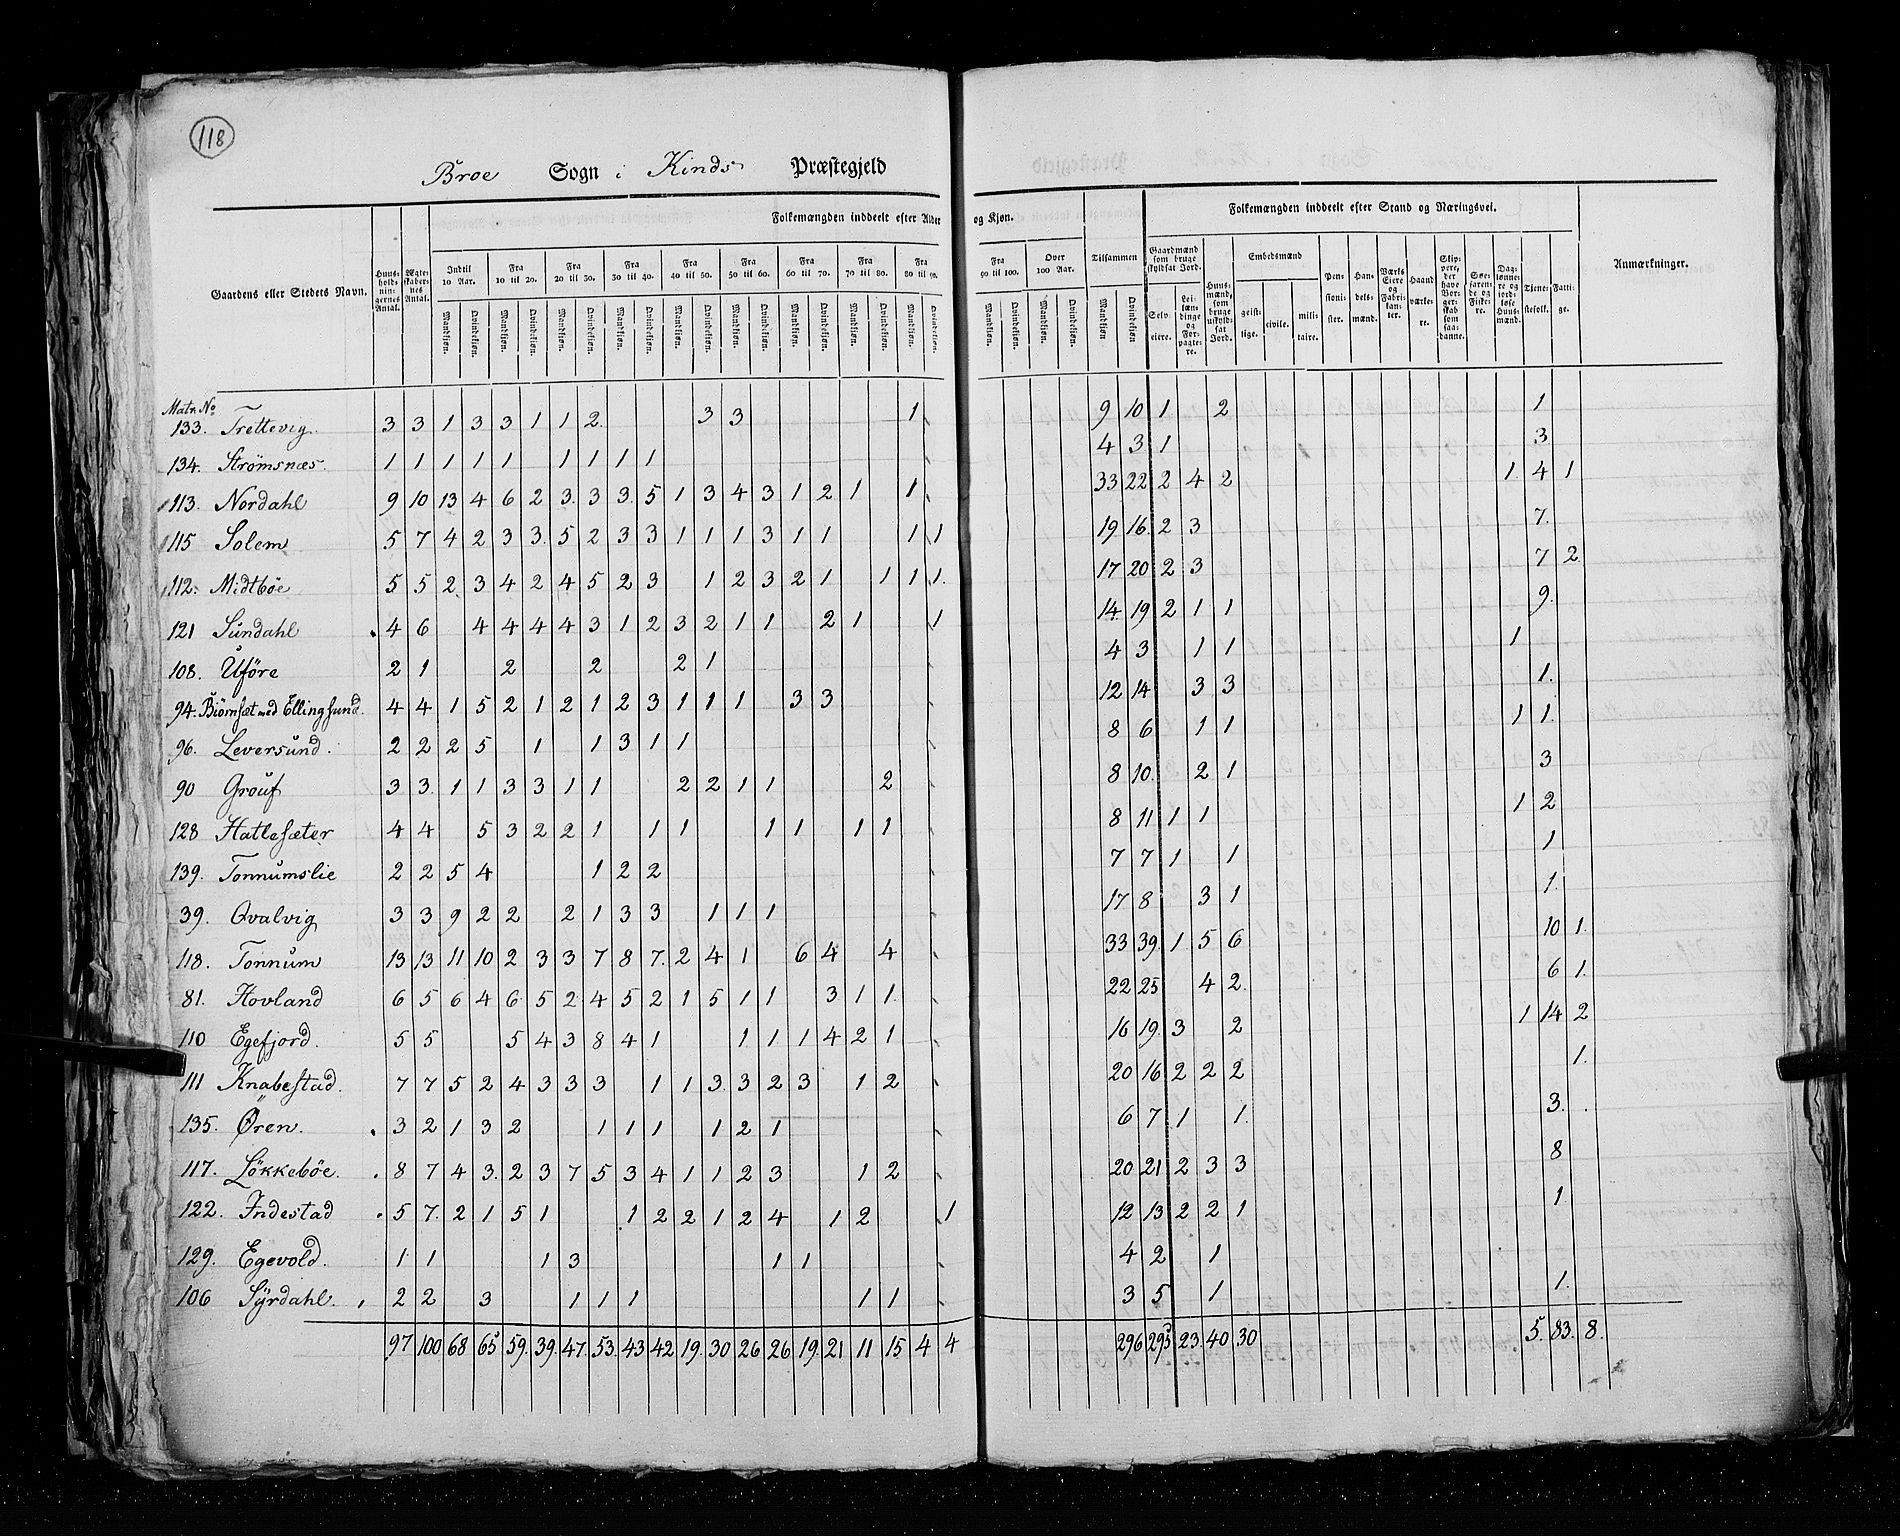 118
Broe Sogn i Kinds Præstegjeld
Folkemængden inddeelt efter Alder og Kjøn. Folkemængden inddeelt efter Stand og Næringsvei.
Gaardens eller Stedets Navn. Huus-hold-nin-gernes Antal. Ægte-skaber-nes Antal. Indtil 10 Aar. Fra 10 til 20. Fra 20 til 30. Fra 30 til 40. Fra 40 til 50. Fra 50 til 60. Fra 60 til 70. Fra 70 til 80. Fra 80 til 90. Fra 90 til 100. Over 100 Aar. Tilsammen Gaardmænd som bruge skyldsat Jord. Huus-mænd, som bruge uskyld-sat Jord. Embedsmænd Pen-sioni-ster. Han-dels-mænd. Værks Eiere og Fabri-kan-ter. Haand-værke-re. Skip-pere, der have Bor-ger-skab som saa-danne. Søe-faren-de og Fiske-re. Dag-lønne-re og jord-løse Huus-mænd. Tjene-stefolk. Fatti-ge. Anmærkninger.
Mandkjøn. Qvindekjøn. Mandkjøn. Qvindekjøn. Mandkjøn. Qvindekjøn. Mandkjøn. Qvindekjøn. Mandkjøn. Qvindekjøn. Mandkjøn. Qvindekjøn. Mandkjøn. Qvindekjøn. Mandkjøn. Qvindekjøn. Mandkjøn. Qvindekjøn. Mandkjøn. Qvindekjøn. Mandkjøn. Qvindekjøn. Mandkjøn Qvindekjøn Selv-eiere. Lei-læn-dinge og For-pagte-re. geist-lige. civile. mili-taire.
Matr. No
133. Trettevig. 3 3 1 3 3 1 1 2. 3 3 1 9 10 1 2 1
134. Strømsnæs. 1 1 1 1 1 1 1 1 1 4 3 1 3
113. Nordahl 9 10 13 4 6 2 3. 3 3. 5 1 3 4 3 1 2 1 1 33 22 2 4 2 1 4 1
115 Solem 5 7 4 2 3 3. 5 2 3 3 1 1 1 3 1 1 1 1 19 16. 2 3 7.
112. Midtböe 5 5 2 3 4 2 4 5 2 3 1 2 3 2 1 1 1 1. 17 20 2 3 7 2
121 Sundahl 4 6 4 4 4 4 3 1 2 3 2 1 1 2 1 1 14. 19 2 1 1 9.
108. Uföre 2 1 2 2 2 1 4 3 1 1 1
94. Biörnsæt med Ellingsund. 4 4 1 5 2 1 2 1 2 3 1 1 1 3 3 12 14 3 3 1.
96. Leversund. 2 2 2 5 1 1 3 1 1 8 6 1 1 1 1.
90 Grouf 3 3. 1 1 3 3 1 1 2 2 1 1 2 8 10. 2 1 3
128 Hatlesæter 4 4 5 3 2 2 1 1 1 1 1 1 1 8 11 1 1 1 2
139. Tonnumslie 2 2 5 4 1 2 2 7 7 1 1 1
39. Qvalvig 3 3 9 2 2 2 1 3 3 1 1 1 17 8 3 1 1.
118. Tonnum 13 13 11 10 2 3 3 7 8 7. 2 4 1 6 4 4 33 39. 1 5 6 10 1.
81. Hovland 6 5 6 4 6 5 2 4 5 2 1 5 1 1 3 1 1 22 25 4 2. 6 1.
110 Egefjord. 5 5 5 4 3 8 4 1 1 1 1 4 2 1 16 19. 3 2 1 14 2
111 Knabestad. 7 7 5 2 4 3 3 3 1 1 3. 3 2 3 1 2 20 16 2 2 2 1.
135. Øren. 3 2 1 3 2 1 1 1 1 2 1 6 7 1 1. 3.
117. Løkkebøe. 8 7 4 3. 2 3 7 5 3 4 1 1 2 3 1 2 20 21 2 3 3 8
122. Indestad 5 7. 2 1 5 1 1 2 2 1 2 4 1 2 1 12 13 2 2 1 1
129. Egevold. 1 1 1 3 1 1 4 2 1
106 Syrdahl. 2 2 3 1 1 1 1 1 3 5 1 1.
97 100 68 65 59. 39. 47. 53. 43 42 19. 30 26 26 19. 21 11 15 4 4 296 295 23 40 30 5. 83. 8.